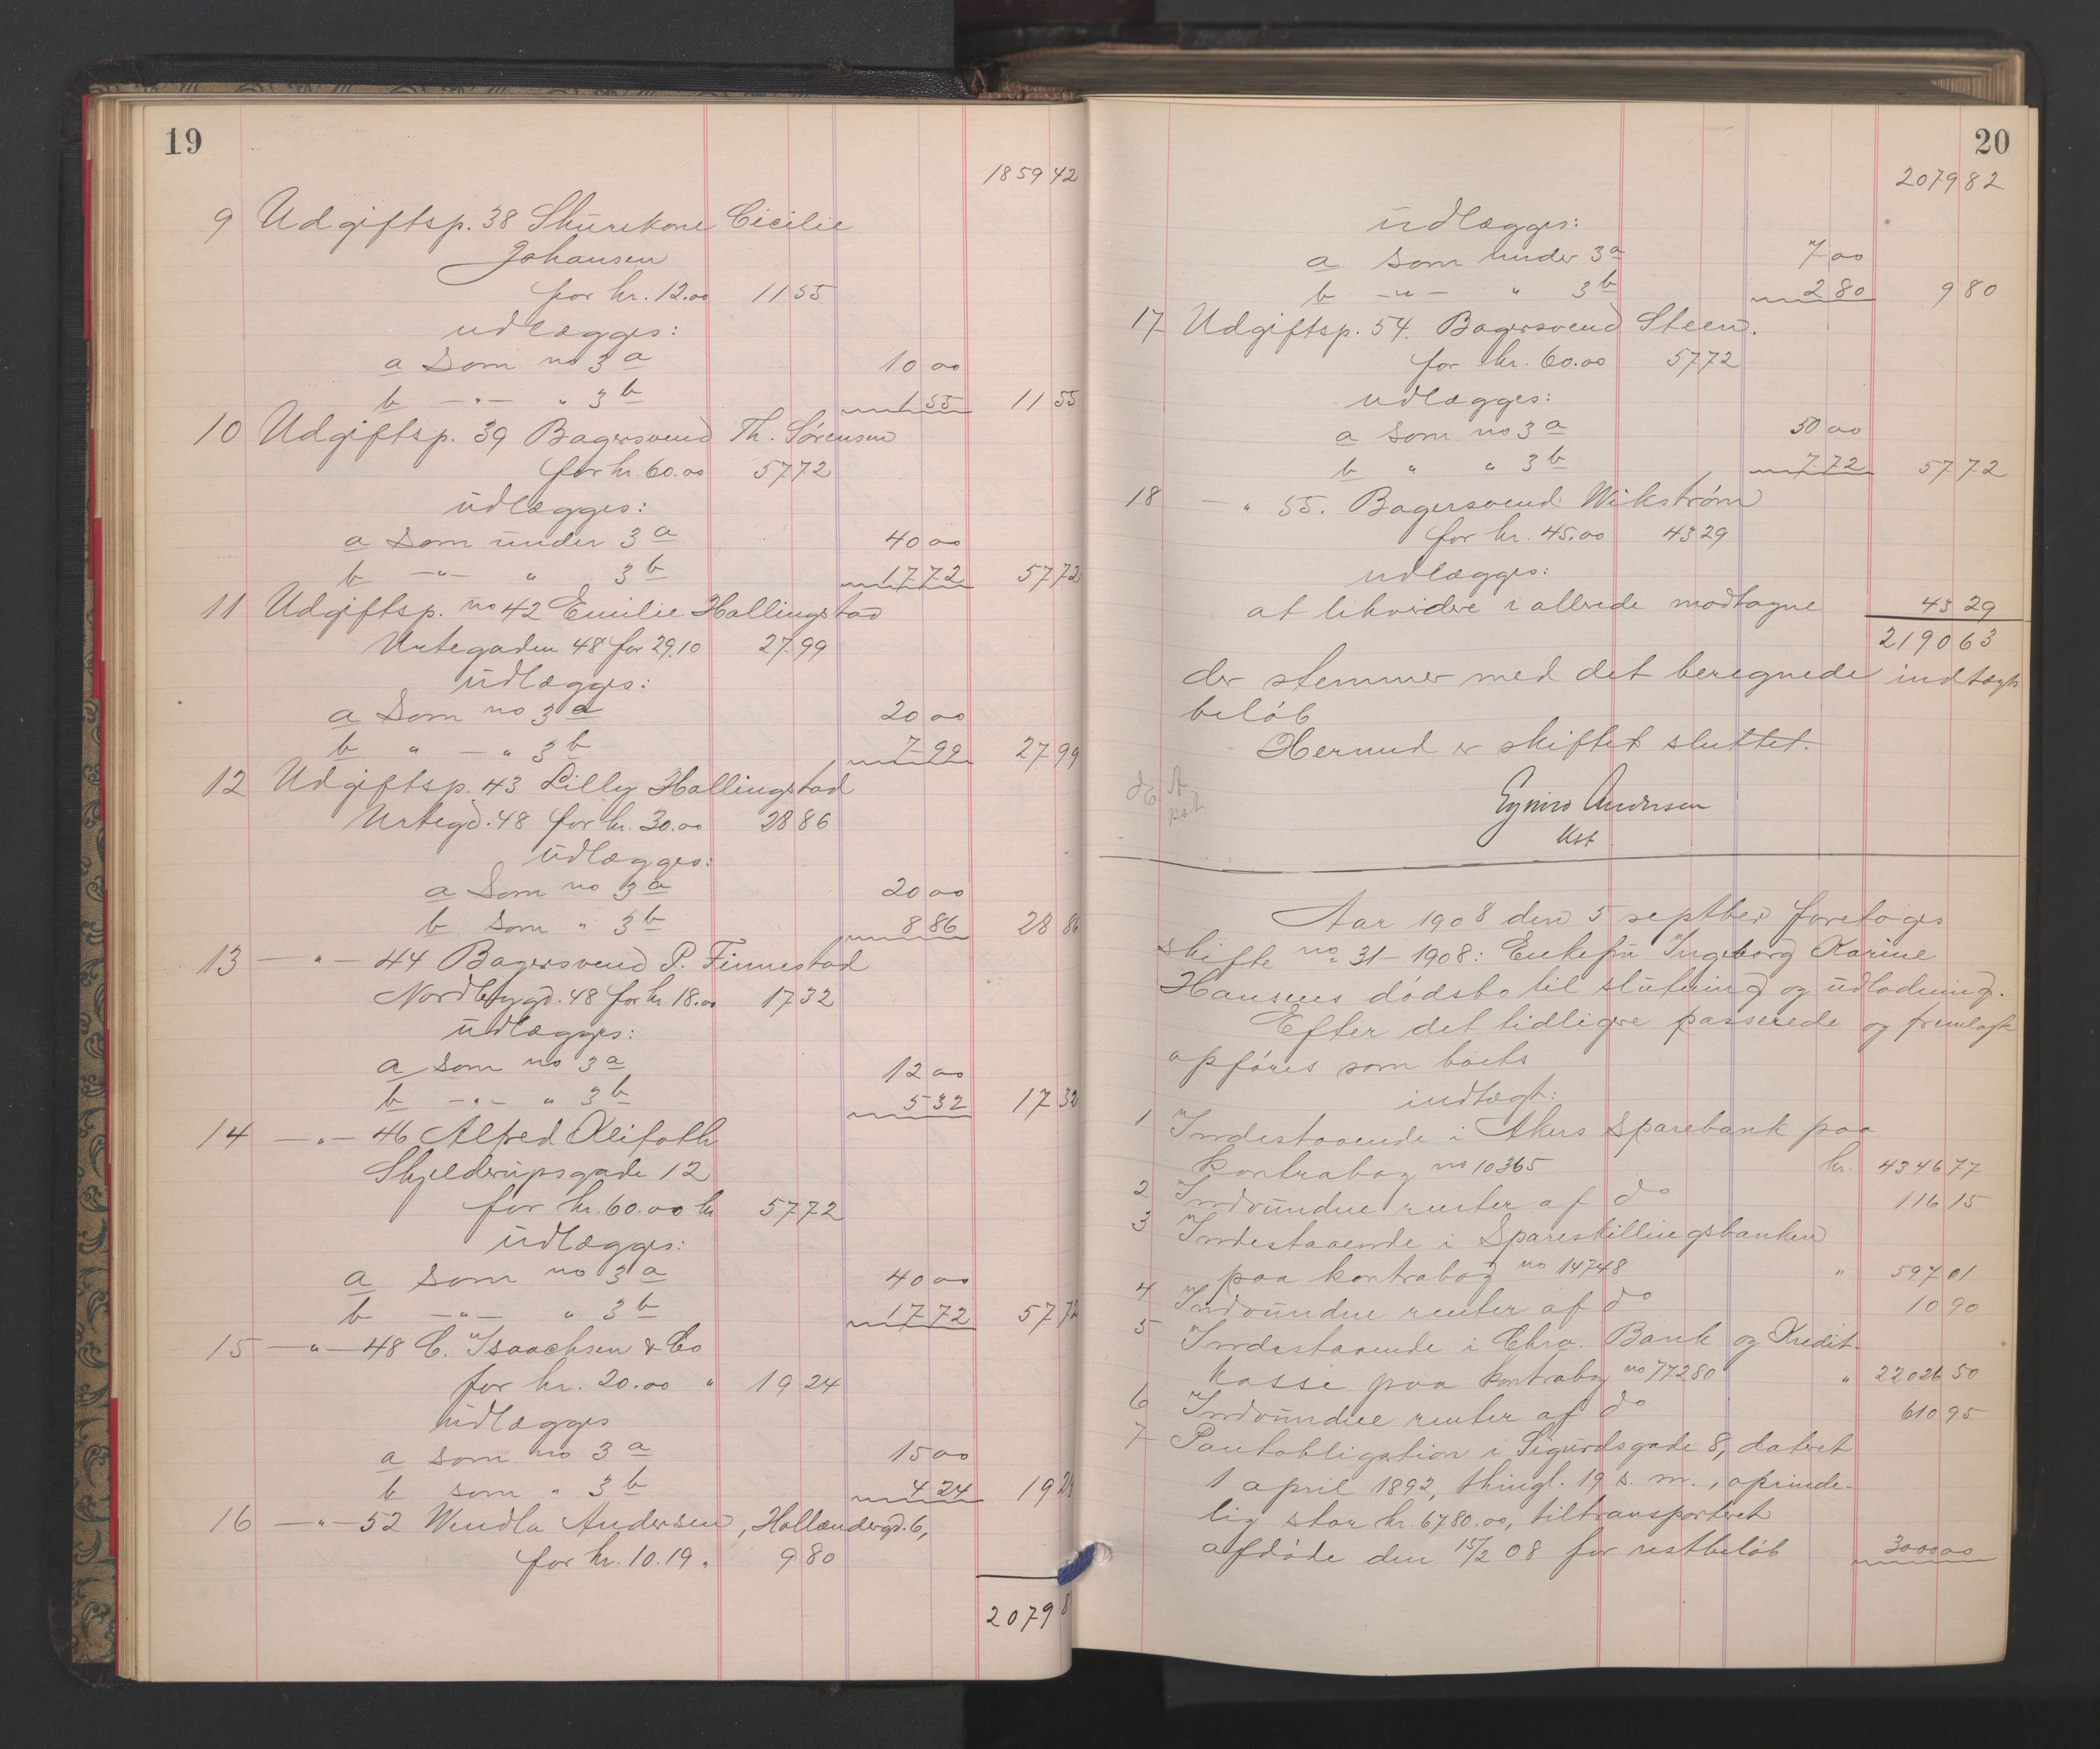 19
1859 42
9 Udgiftsp. 38 Skurekone Cicilie
Johansen
for kr. 12.00 11 55
udlægges:
a Som no 3 a 10 00
b -"- " 3 b 1 55 11 55
10 Udgiftsp. 39 Bagersvend Th. Sørensen
for kr. 60.00 57 72
udlægges:
a Som under 3 a 40 00
b -"- " 3 b 17 72 57 72
11 Udgiftsp. no 42 Emilie Hallingstad
Urtegaden 48 for 29.10 27 99
udlægges:
a Som no 3 a 20 00
b " -" 3 b 7 99 27 99
12 Udgiftsp. 43 Lilly Hallingstad
Urtegd. 48 for kr. 30.00 28 86
udlægges:
a Som no 3 a 20 00
b Som " 3 b 8 86 28 86
13 -"- 44 Bagersvend P. Finnestad
Nordbygd. 48 for kr. 18.00 17 32
udlægges:
a Som no 3 a 12 00
b -"- " 3 b 5 32 17 32
14 -"- 46 Alfred Klifoth
Skjelderupsgade 12
for kr. 60.00 kr 57 72
udlægges:
a Som no 3 a 40 00
b -"- " 3 b 17 72 57 72
15 -"- 48 C. Isaachsen & Co
for kr. 20.00 " 19 24
udlægges
a som no 3 a 15 00
b som " 3 b 4 24 19 24
16 -"- 52 Wendla Andersen, Hollændergd. 6,
for kr. 10.19 " 9 80
2079 8
20
2079 82
udlægges:
a som under 3 a 7 00
b -"- " 3 b 2 80 9 80
17 Udgiftsp. 54. Bagersvend Steen.
for kr. 60.00 57 72
udlægges:
a som no 3 a 50 00
b " " 3 b 7 72 57 72
18 " 55. Bagersvend Wikstrøm
for kr. 45.00 43 29
udlægges:
at likvidere i allerede modtagne 43 29
2190 63
der stemmer med det beregnede indtægts
beløb
Hermed er skiftet sluttet.
Eyvind Andersen
Kst
Aar 1908 den 5 septber foretoges
skifte no. 31-1908: Enkefru Ingeborg Karine
Hansens dødsbo til slutning og udlodning.
Efter det tidligere passerede og fremlagte
opføres som boets
indtægt:
1 Indestaaende i Akers Sparebank paa
kontrabog no 10365 kr. 4346 77
2 Indvundne renter af do 116 15
3 Indestaaende i Spareskillingsbanken
paa kontrabog no 14748 " 597 01
4 Indvundne renter af do 10 90
5 Indestaaende i Chra. Bank og Kredit-
kasse paa kontrabog no 77280 " 22026 50
6 Indvundne renter af do 610 95
7 Pantobligation i Sigurdsgade 8, dateret
1 april 1892, thingl. 19 s. m., oprinde-
lig stor kr. 6780.00, tiltransporteret
afdøde den 15/2 08 for restbeløb 3000 00